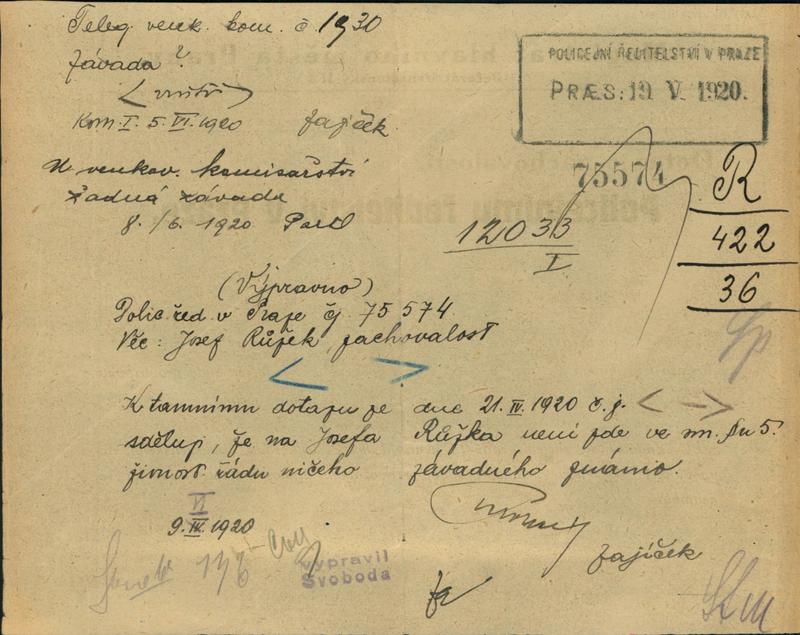 Teleg. venk. kom. č 1930
závada?
(vnitř)
Kom. I. 5. VI. 1920 Zajíček
POLICEJNÍ ŘEDITELSTVÍ V PRAZE
PRÆS: 19. V. 1920.
75574
R
422
36
U venkov. komisařství
žádná závada
8./6. 1920
12033
I
(Výpravno)
Polic. řed. v Praze čj. 75574
Věc: Josef Růžek, zachovalost
K tamnímu dotazu ze dne 21. IV. 1920 č. j.
sděluji, že na Josefa Růžka není zde ve sm. § 5.
živnost. řádu ničeho závadného známo.
VI
9. IV. 1920
Zajíček
vypravil
Svoboda